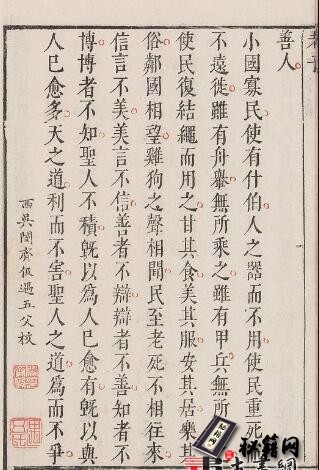 善人
小國寡民使有什伯人之器而不用使民重死
不遠徙雖有舟轝無所乘之雖有甲兵無所
使民復結繩而用之甘其食美其服安其居樂其
俗鄰國相望雞狗之聲相聞民至老死不相往來
信言不美美言不信善者不辯辯者不善知者不
博博者不知聖人不積旣以為人已愈有旣以與
人已愈多天之道利而不害聖人之道爲而不爭
西吳閔齊伋遇五父校
秘籍网